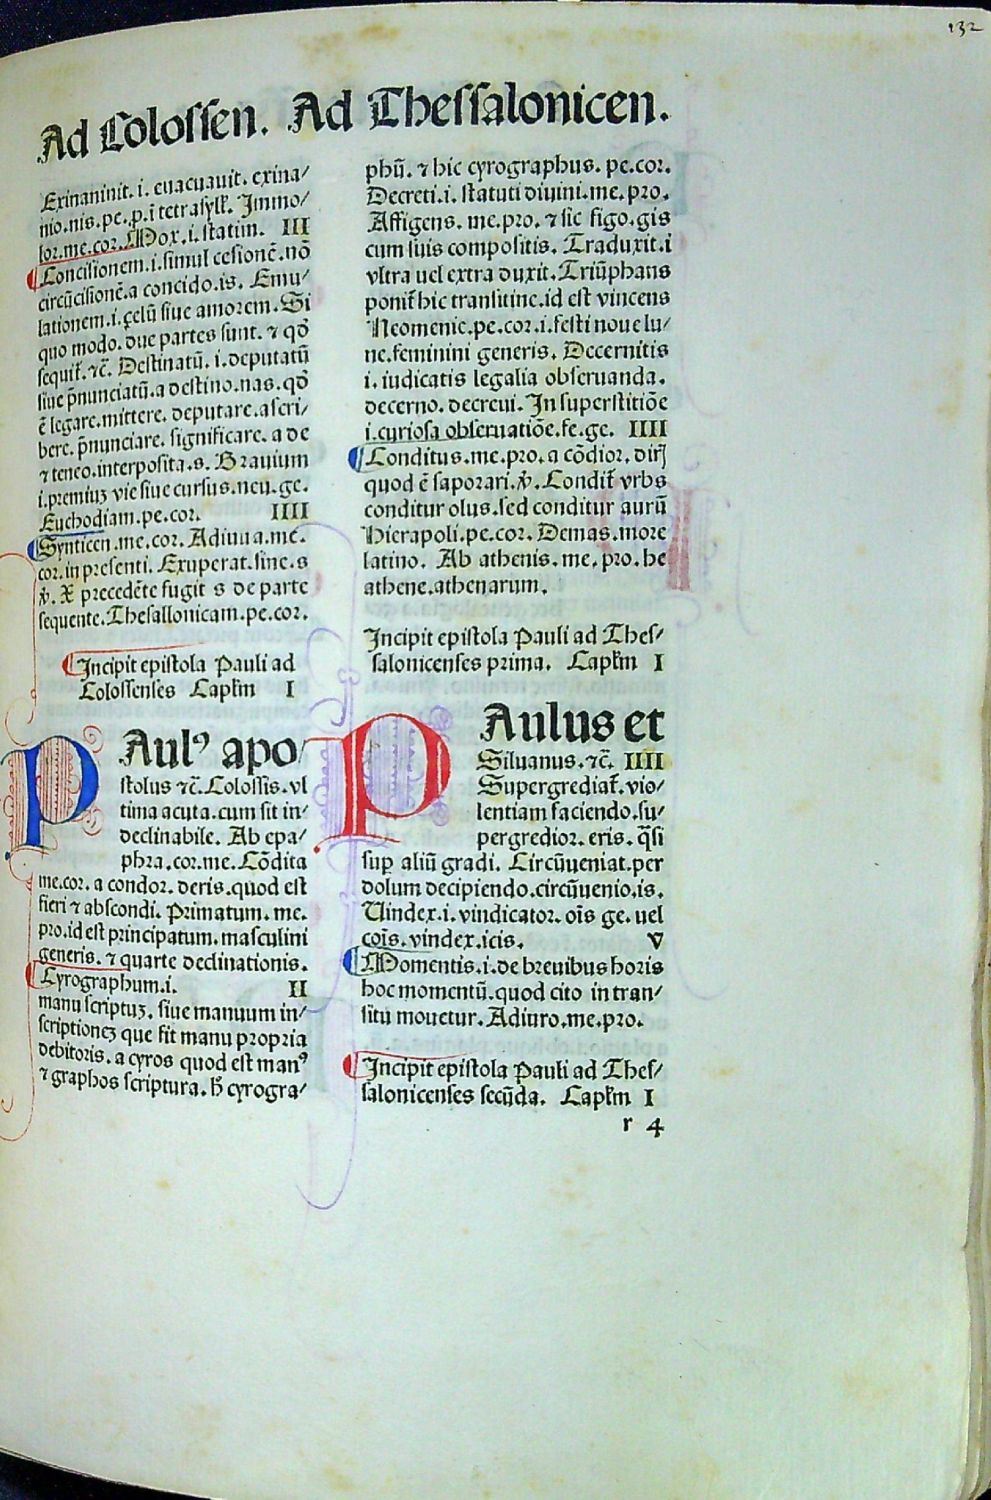 132
Ad Colossen. Ad Thessalonicen.
Exinaninit.i.euacuauit.exina/
nio.nis.pe.p.ĩ tetrasylł. Immo/
lor.me.cor. Mox.i.statim. III
Concisionem.i.simul cesionẽ.nõ
circũcisionẽ.a concido.is. Emu/
lationem.i.çelũ siue amorem. Si
quo modo. due partes sunt. ⁊ qđ
sequit᷑.⁊c̃. Destinatũ.i.deputatũ
siue p̃nunciatũ.a destino.nas.qđ
ẽ legare.mittere.deputare.ascri/
bere.p̃nunciare.significare.a de
⁊ teneo.interposita.s. Brauium
i.premiuꝫ vie siue cursus.neu.ge.
Euchodiam.pe.cor. IIII
Synticen.me.cor. Adiuua.me.
cor.in presenti. Exuperat.sine.s
v̓. X precedẽte fugit s de parte
sequente. Thesallonicam.pe.cor.
Incipit epistola Pauli ad
Colossenses Capłm I
PAulꝰ apo/
stolus ⁊c̃. Colossis.vl
tima acuta.cum sit in/
declinabile. Ab epa/
phra.cor.me. Cõdita
me.cor.a condor.deris.quod est
fieri ⁊ abscondi. Primatum.me.
pro.id est principatum.masculini
generis.⁊ quarte declinationis.
Cyrographum.i. II
manu scriptuꝫ.siue manuum in/
scriptioneꝫ que fit manu propria
debitoris.a cyros quod est manꝰ
⁊ graphos scriptura.ħ cyrogra/
phũ.⁊ hic cyrographus.pe.cor.
Decreti.i.statuti diuini.me.pro.
Affigens.me.pro.⁊ sic figo.gis
cum suis compositis. Traduxit.i
vltra uel extra duxit. Triũphans
ponit᷑ hic transitiue.id est vincens
Neomenie.pe.cor.i.festi noue lu/
ne.feminini generis. Decernitis
i.iudicatis legalia obseruanda.
decerno.decreui. In superstitiõe
i.curiosa obseruatiõe.fe.ge. IIII
Conditus.me.pro.a cõdior.dirĩ
quod ẽ saporari.v̓. Condit᷑ vrbs
conditur olus.sed conditur aurũ
Hierapoli.pe.cor. Demas.more
latino. Ab athenis.me.pro.he
athene.athenarum.
Incipit epistola Pauli ad Thes/
salonicenses prima. Capłm I
PAulus et
Siluanus.⁊c̃. IIII
Supergrediat᷑.vio/
lentiam faciendo.su/
pergredior.eris.q̃si
suꝑ aliũ gradi. Circũueniat.per
dolum decipiendo.circũuenio.is.
Uindex.i.vindicator.oĩs ge.uel
coĩs.vindex.icis. V
Momentis.i.de breuibus horis
hoc momentũ.quod cito in tran/
situ mouetur. Adiuro.me.pro.
Incipit epistola Pauli ad Thes/
salonicenses secũda. Capłm I
r 4